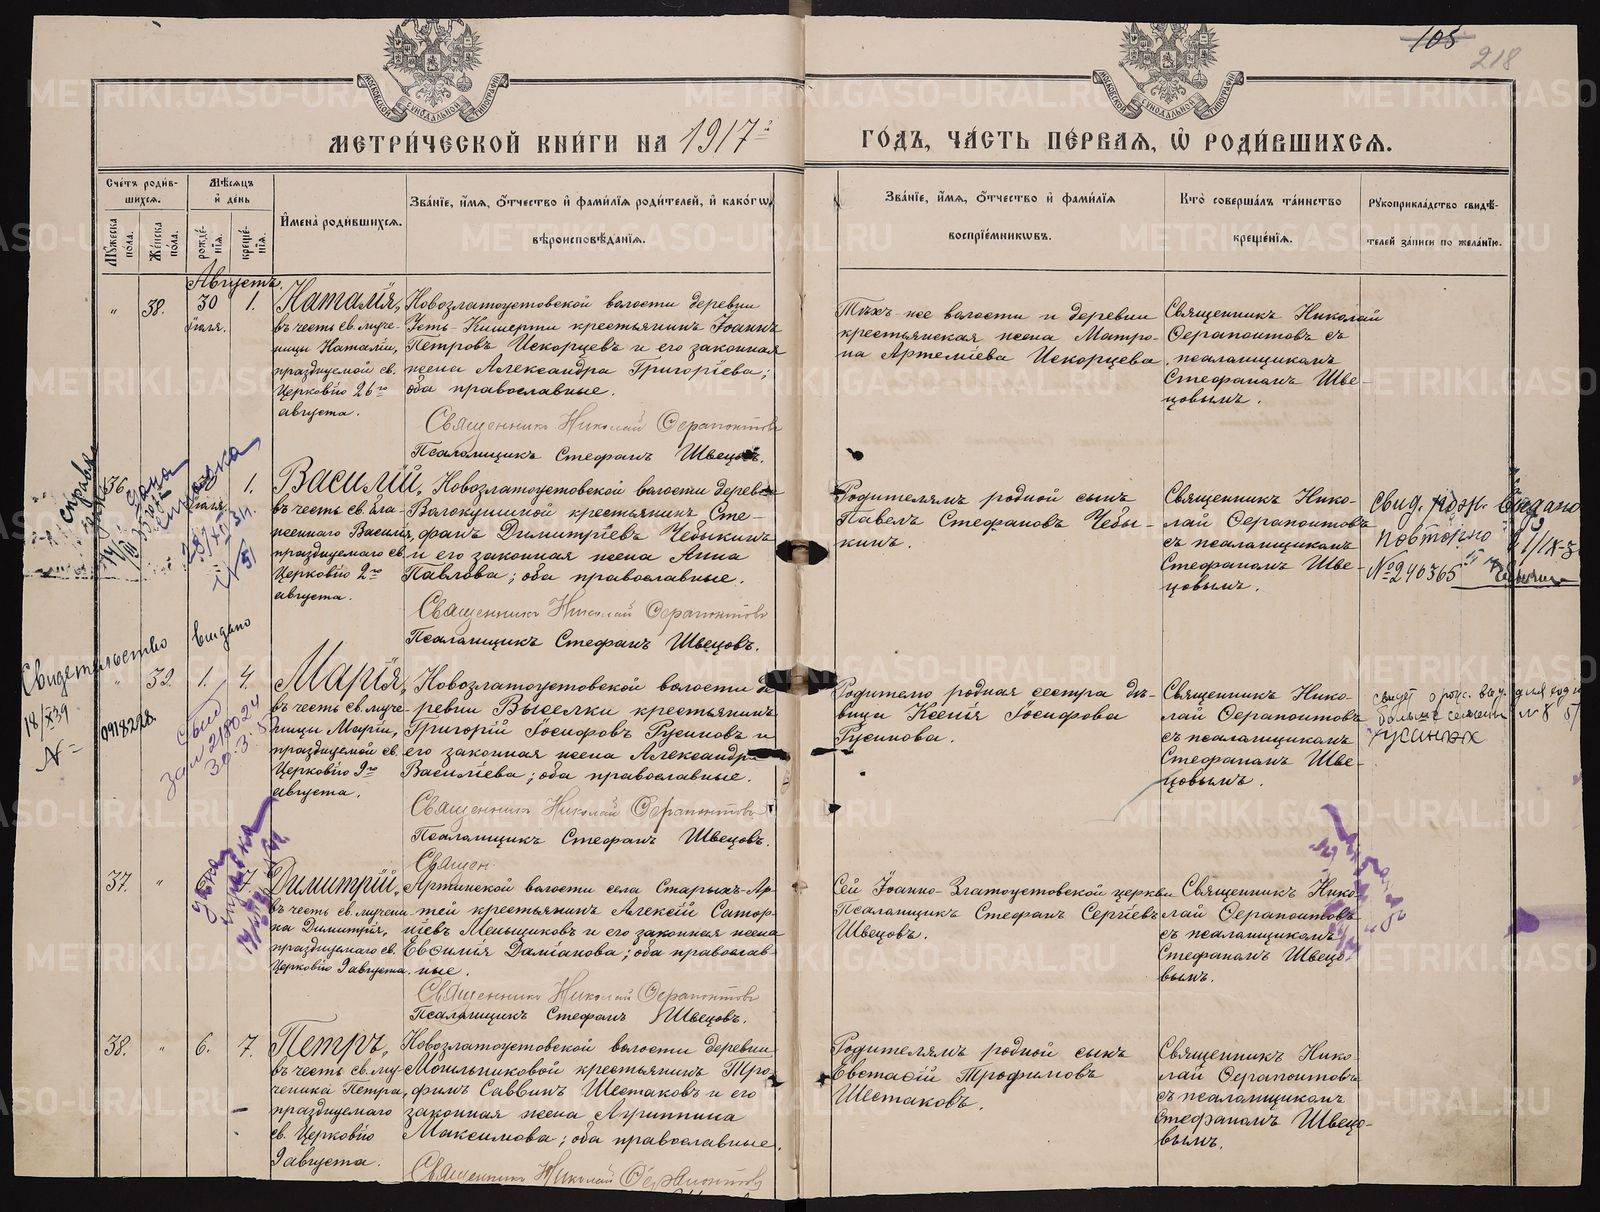 105
218
МЕТРИ́ЧЕСКОЙ КНИ́ГИ НА 1917 г.
ГО́ДЪ, ЧА́СТЬ ПЕ́РВАЯ, Ѽ РОДИ́ВШИХСЯ.
МОСКОВСКОЙ СИНОДАЛЬНОЙ ТИПОГРАФІИ
МОСКОВСКОЙ СИНОДАЛЬНОЙ ТИПОГРАФІИ
Сче́тъ роди́в-
шихся.
Му́жеска по́ла.
Же́нска по́ла.
Мѣ́сяцъ
и҆ де́нь
рожде́-
нїя.
креще́-
нїя.
И҆мена̀ роди́вшихся.
Зва́нїе, и҆́мя, ѻ҆́тчество и҆ фами́лїя роди́телей, и҆ како́гѡ
вѣроисповѣ́данїя.
Зва́нїе, и҆́мя, ѻ҆́тчество и҆ фами́лїя
воспрїе́мникѡвъ.
Кто̀ соверша́лъ та́инство
креще́нїя.
Рꙋкоприкла́дство свидѣ́-
телей за́писи по жела́нїю.
Августъ.
" 38. 30 Іюля. 1.
Наталія,
въ честь св. муче-
ницы Наталіи,
празднуемой св.
Церковію 26го
августа.
Новозлатоустовской волости деревни
Усть-Кишерти крестьянинъ Іоаннъ
Петровъ Искорцевъ и его законная
жена Александра Григоріева;
оба православные.
Священникъ Николай Ѳерапонтовъ
Псаломщикъ Стефанъ Швецовъ.
Тѣхъ-же волости и деревни
крестьянская жена Матро-
на Артеміева Искорцева.
Священникъ Николай
Ѳерапонтовъ съ
псаломщикомъ
Стефаномъ Шве-
цовымъ.
36. Іюля. 1.
Василій,
въ честь св. бла-
женнаго Василія,
празднуемаго св.
Церковію 2го
августа.
Новозлатоустовской волости деревни
Волокушиной крестьянинъ Сте-
фанъ Димитріевъ Чебыкинъ
и его законная жена Анна
Павлова; оба православные.
Священникъ Николай Ѳерапонтовъ
Псаломщикъ Стефанъ Швецовъ.
Родителямъ родной сынъ
Павелъ Стефановъ Чебы-
кинъ.
Священникъ Нико-
лай Ѳерапонтовъ
съ псаломщикомъ
Стефаномъ Шве-
цовымъ.
Свид. рожд. Выдано
повторно
№240365
Свидетельство выдано
18/X39
№ 0918298.
" 39. 1. 4.
Марія,
въ честь св. муче-
ницы Маріи,
празднуемой св.
Церковію 9го
августа.
Новозлатоустовской волости де-
ревни Выселки крестьянинъ
Григорій Іосифовъ Русиновъ и
его законная жена Александра
Василіева; оба православные.
Священникъ Николай Ѳерапонтовъ
Псаломщикъ Стефанъ Швецовъ.
Священ
Родителю родная сестра дѣ-
вица Ксенія Іосифова
Русинова.
Священникъ Нико-
лай Ѳерапонтовъ
съ псаломщикомъ
Стефаномъ Шве-
цовымъ.
37. " 7.
Димитрій,
въ честь св. мучени-
ка Димитрія,
празднуемаго св.
Церковію 9 августа.
Артинской волости села Старыхъ-Ар-
тей крестьянинъ Алексій Сатор-
ніевъ Меньщиковъ и его законная жена
Евѳимія Даміанова; оба православ-
ные.
Священникъ Николай Ѳерапонтовъ
Псаломщикъ Стефанъ Швецовъ.
Сей Іоанно-Златоустовской церкви
Псаломщикъ Стефанъ Сергіевъ
Швецовъ.
Священникъ Нико-
лай Ѳерапонтовъ
съ псаломщикомъ
Стефаномъ Швецо-
вымъ.
38. " 6. 7.
Петръ,
въ честь св. му-
ченика Петра,
празднуемаго
св. Церковію
9 августа.
Новозлатоустовской волости деревни
Мочильниковой крестьянинъ Тро-
фимъ Саввинъ Шестаковъ и его
законная жена Агриппина
Максимова; оба православные.
Священникъ Николай Ѳерапонтовъ
Родителямъ родной сынъ
Евстаѳій Трофимовъ
Шестаковъ.
Священникъ Нико-
лай Ѳерапонтовъ
съ псаломщикомъ
Стефаномъ Швецо-
вымъ.
METRIKI.GASO-URAL.RU